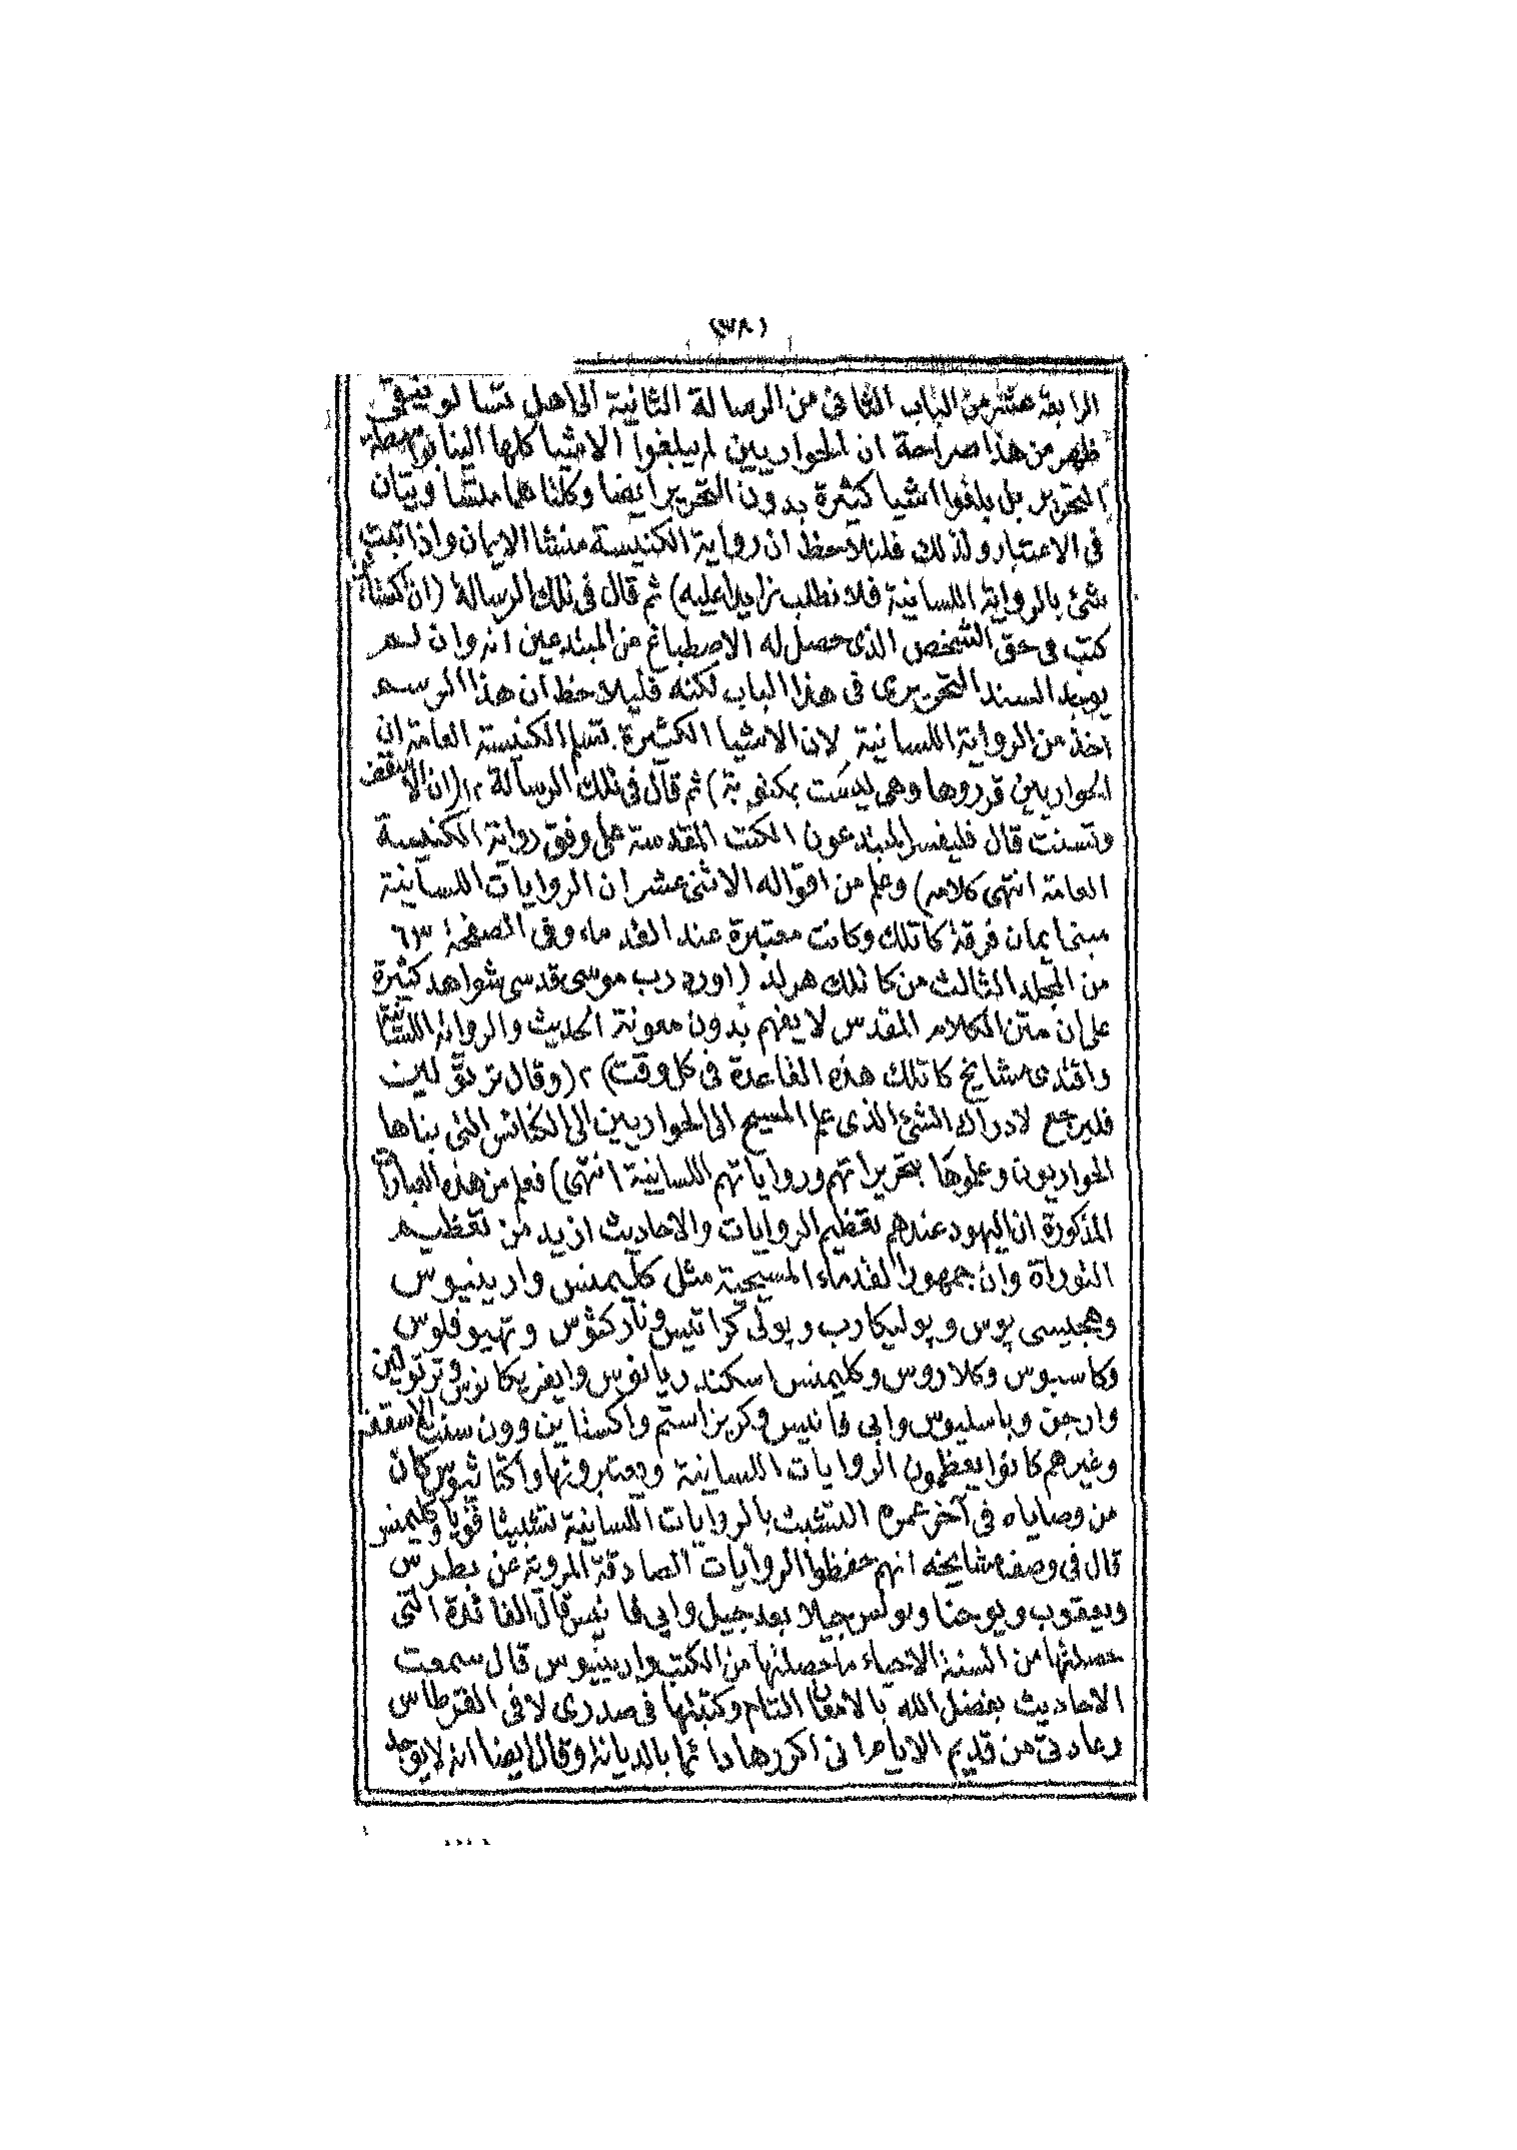 (٣٨)
الرابعة عشر من الباب الثانى من الرسالة الثانية الى اهل تسالونيقى
ظهر من هذا صراحة ان الحواريين لم يبلغوا الاشيا كلها الينا بواسطة
التحرير بل بلغوا اشيا كثيرة بدون التحرير ايضا وكلتاهما متساويتان
فى الاعتبار ولذلك فلنلاحظ ان رواية الكنيسة منشا الايمان واذا ثبت
شئ بالرواية اللسانية فلا نطلب زايدا عليه) ثم قال فى تلك الرسالة (ان اكستاين
كتب فى حق الشخص الذى حصل له الاصطباغ من المبتدعين انه وان لم
يوجد السند التحريرى فى هذا الباب لكنه فليلاحظ ان هذا الرسم
اخذ من الرواية اللسانية لان الاشيا الكثيرة تسلم الكنيسة العامة ان
الحواريين قرروها وهى ليست بمكتوبة) ثم قال فى تلك الرسالة ١٢ (ان الاسقف
ونسنت قال فليفسر المبتدعون الكتب المقدسة على وفق رواية الكنيسة
العامة انتهى كلامه) وعلم من اقواله الاثنى عشر ان الروايات اللسانية
مبنى ايمان فرقة كاتلك وكانت معتبرة عند القدماء وفى الصفحة ٦٣
من المجلد الثالث من كاتلك هرلد (اورد رب موسى قدسى شواهد كثيرة
على ان متن الكلام المقدس لا يفهم بدون معونة الحديث والرواية اللسانية
واقتدى مشايخ كاتلك هذه القاعدة فى كل وقت) ٢ (وقال ترتولين
فليرجع لادراك الشئ الذى علم المسيح الى الحواريين الى الكنائس التى بناها
الحواريون وعلموها بتحريراتهم ورواياتهم اللسانية انتهى) فعلم من هذه العبارات
المذكورة ان اليهود عندهم تعظيم الروايات والاحاديث ازيد من تعظيم
التوراة وان جمهور القدماء المسيحية مثل كليمنس وارينيوس
وهجيسى پوس و پوليكارب و پولى كراتيس ونارکثوس وتهيوفلوس
وكاسيوس وكلاروس وكليمنس اسكندريانوس وايفريكانوس وترتولين
وارجن وباسليوس وابى فانيس وكريزاستم واكستاين وون سنت الاسقف
وغيرهم كانوا يعظمون الروايات اللسانية ويعتبرونها واكناثيوس كان
من وصاياه فى آخر عمره التشبث بالروايات اللسانية تشبثا قويا وكليمنس
قال فى وصف مشايخه انهم حفظوا الروايات الصادقة المروية عن بطرس
ويعقوب ويوحنا وبولس جيلا بعد جيل وابى فانيس قال الفائدة التى
حصلتها من السنة الاحياء ما حصلتها من الكتب وارينيوس قال سمعت
الاحاديث بفضل الله بالامعان التام وكتبتها فى صدرى لا فى القرطاس
وعادتى من قديم الايام انى اكررها دائما بالديانة وقال ايضا انه لا يوجد